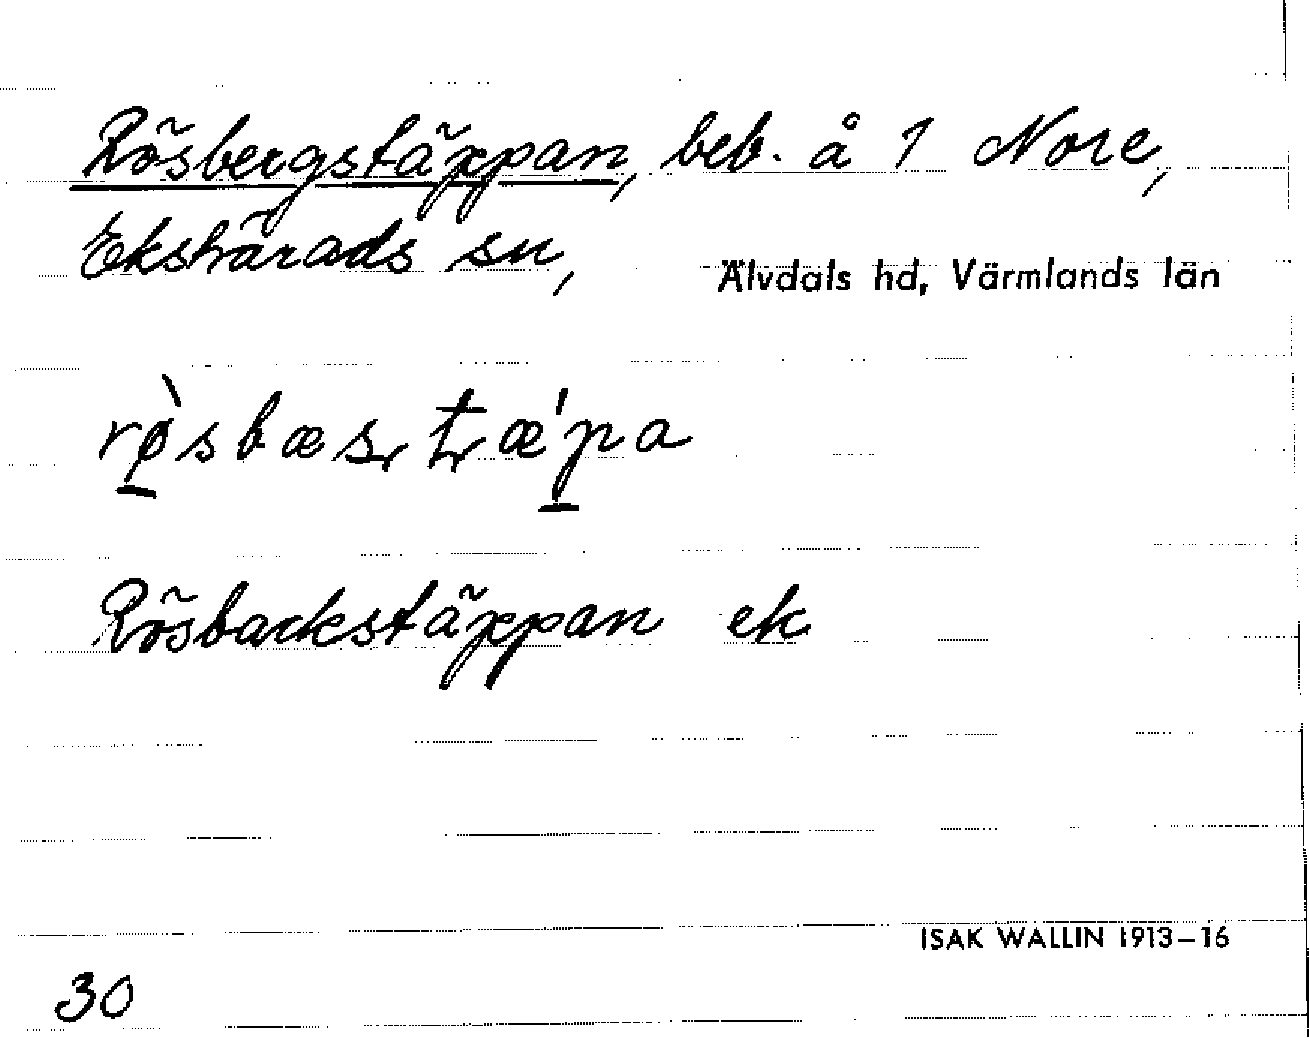 Rösbergstäppan, beb. å 1 Nore,
Ekshärads sn,
Älvdals hd, Värmlands län
rø̀sbæsʈǽpa
Rösbackstäppan ek
ISAK WALLIN 1913–16
30